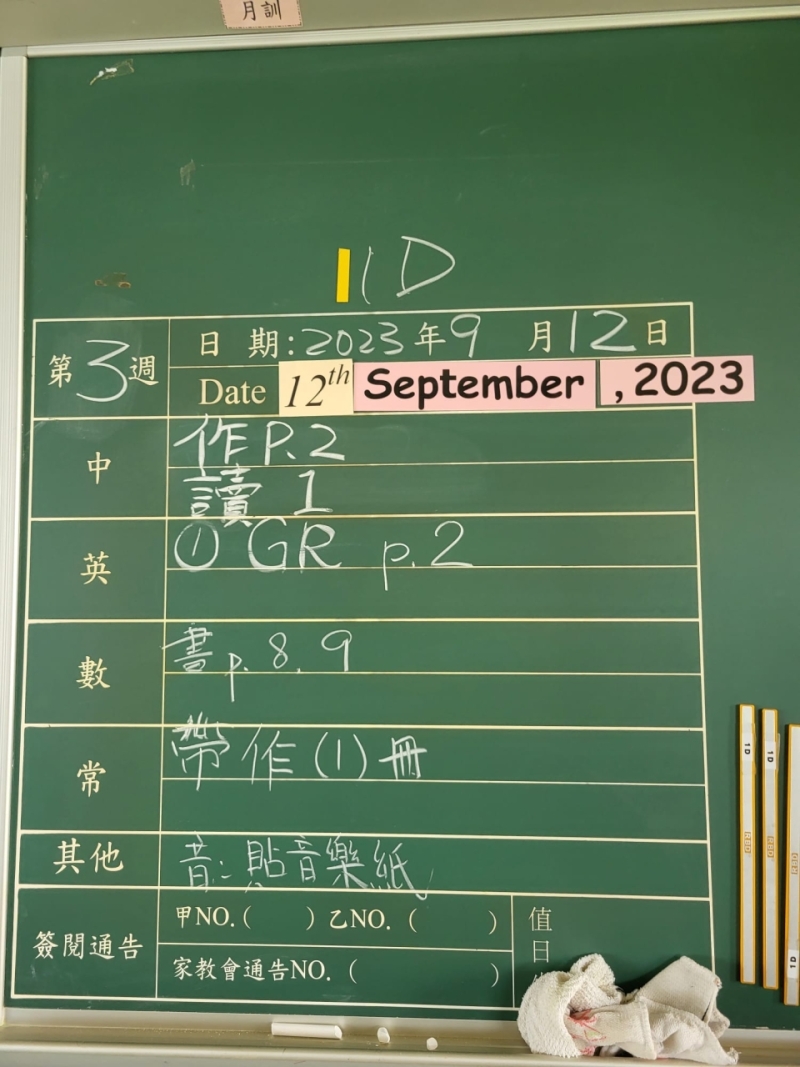 月訓
1D
第3週
日 期:2023年9 月12日
Date 12th September , 2023
中
作P.2
讀 1
英
① GR p.2
數
書p.8.9
常
帶作(1)冊
其他
音:貼音樂紙
簽閱通告
甲NO.( ) 乙NO. ( )
家教會通告NO. ( )
值
日
1D
1D
1D